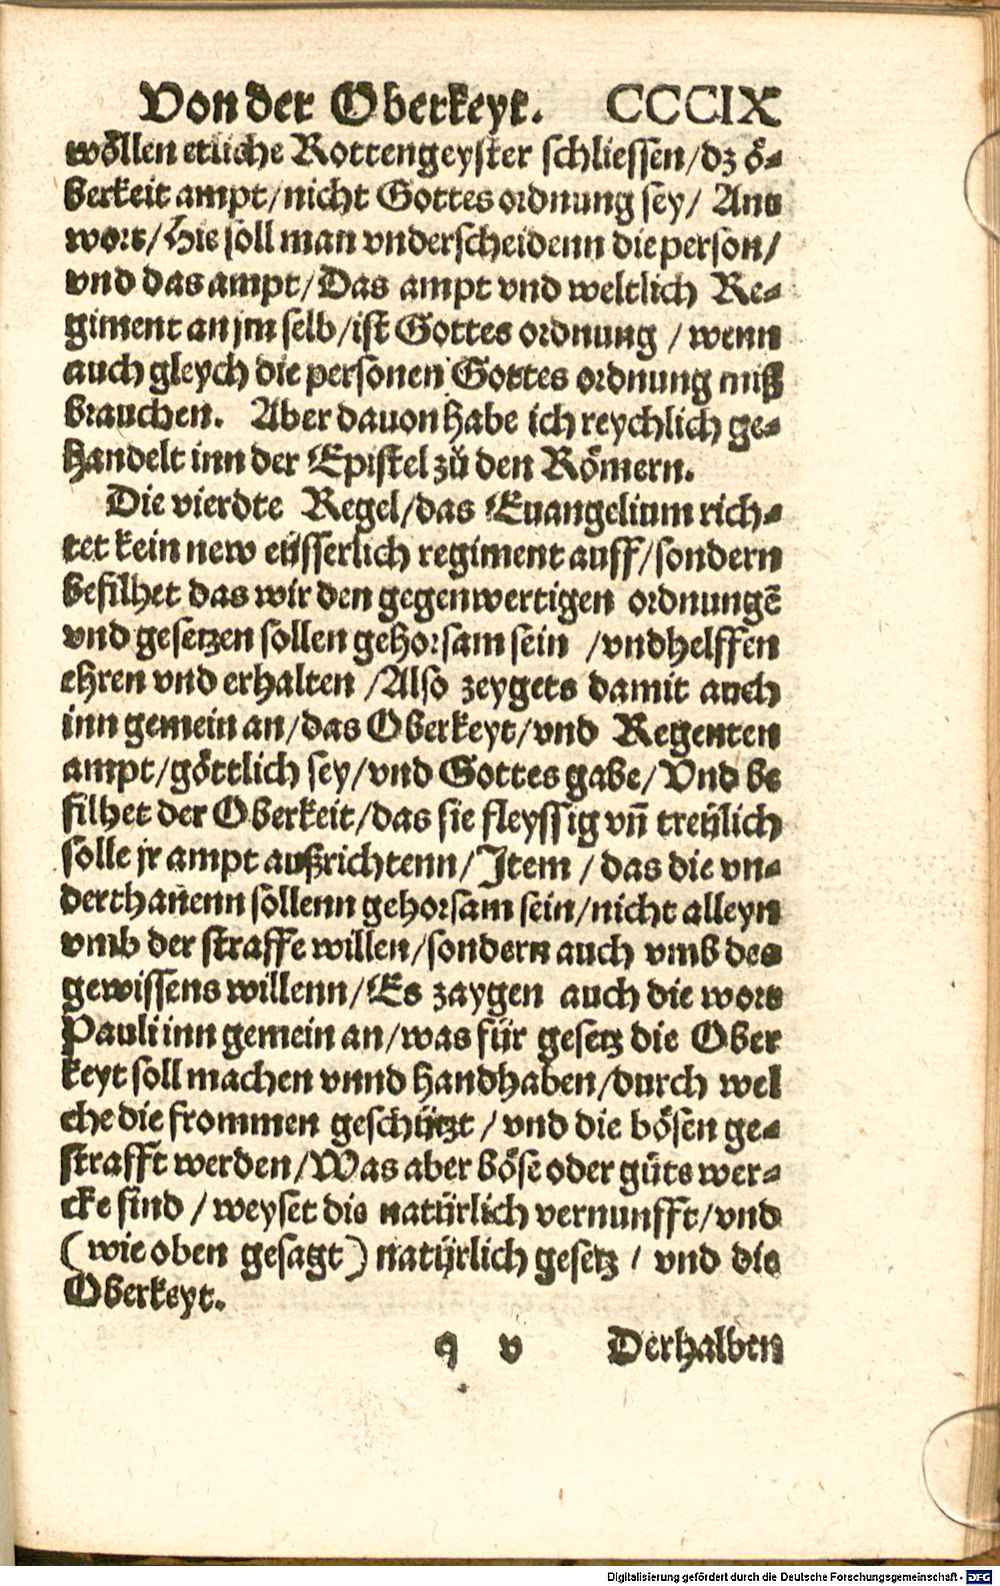 Von der Oberkeyt. CCCIX
wöllen etliche Rottengeyster schliessen/dz ö-
berkeit ampt/nicht Gottes ordnung sey/ Ant
wort/Hie soll man vnderscheidenn die person/
vnd das ampt/Das ampt vnd weltlich Re-
giment an jm selb/ist Gottes ordnung / wenn
auch gleych die personen Gottes ordnung miß
brauchen. Aber dauon habe ich reychlich ge-
handelt inn der Epistel zů den Römern.
Die vierdte Regel/das Euangelium rich-
tet kein new eüsserlich regiment auff/sondern
befilhet das wir den gegenwertigen ordnungẽ
vnd gesetzen sollen gehorsam sein /vndhelffen
ehren vnd erhalten /Also zeygets damit auch
inn gemein an/das Oberkeyt/vnd Regenten
ampt/göttlich sey/vnd Gottes gabe/Vnd be
filhet der Oberkeit/das sie fleyssig vñ treülich
solle jr ampt außrichtenn/Item / das die vn-
derthanenn söllenn gehorsam sein/nicht alleyn
vmb der straffe willen/sondern auch vmb des
gewissens willenn/Es zaygen auch die wort
Pauli inn gemein an/was für gesetz die Ober
keyt soll machen vnnd handhaben/durch wel
che die frommen geschützt / vnd die bösen ge-
strafft werden/Was aber böse oder gůts wer-
cke sind / weyset die natürlich vernunfft/vnd
(wie oben gesagt) natürlich gesetz / vnd die
Oberkeyt.
q v Derhalben
Digitalisierung gefördert durch die Deutsche Forschungsgemeinschaft - DFG